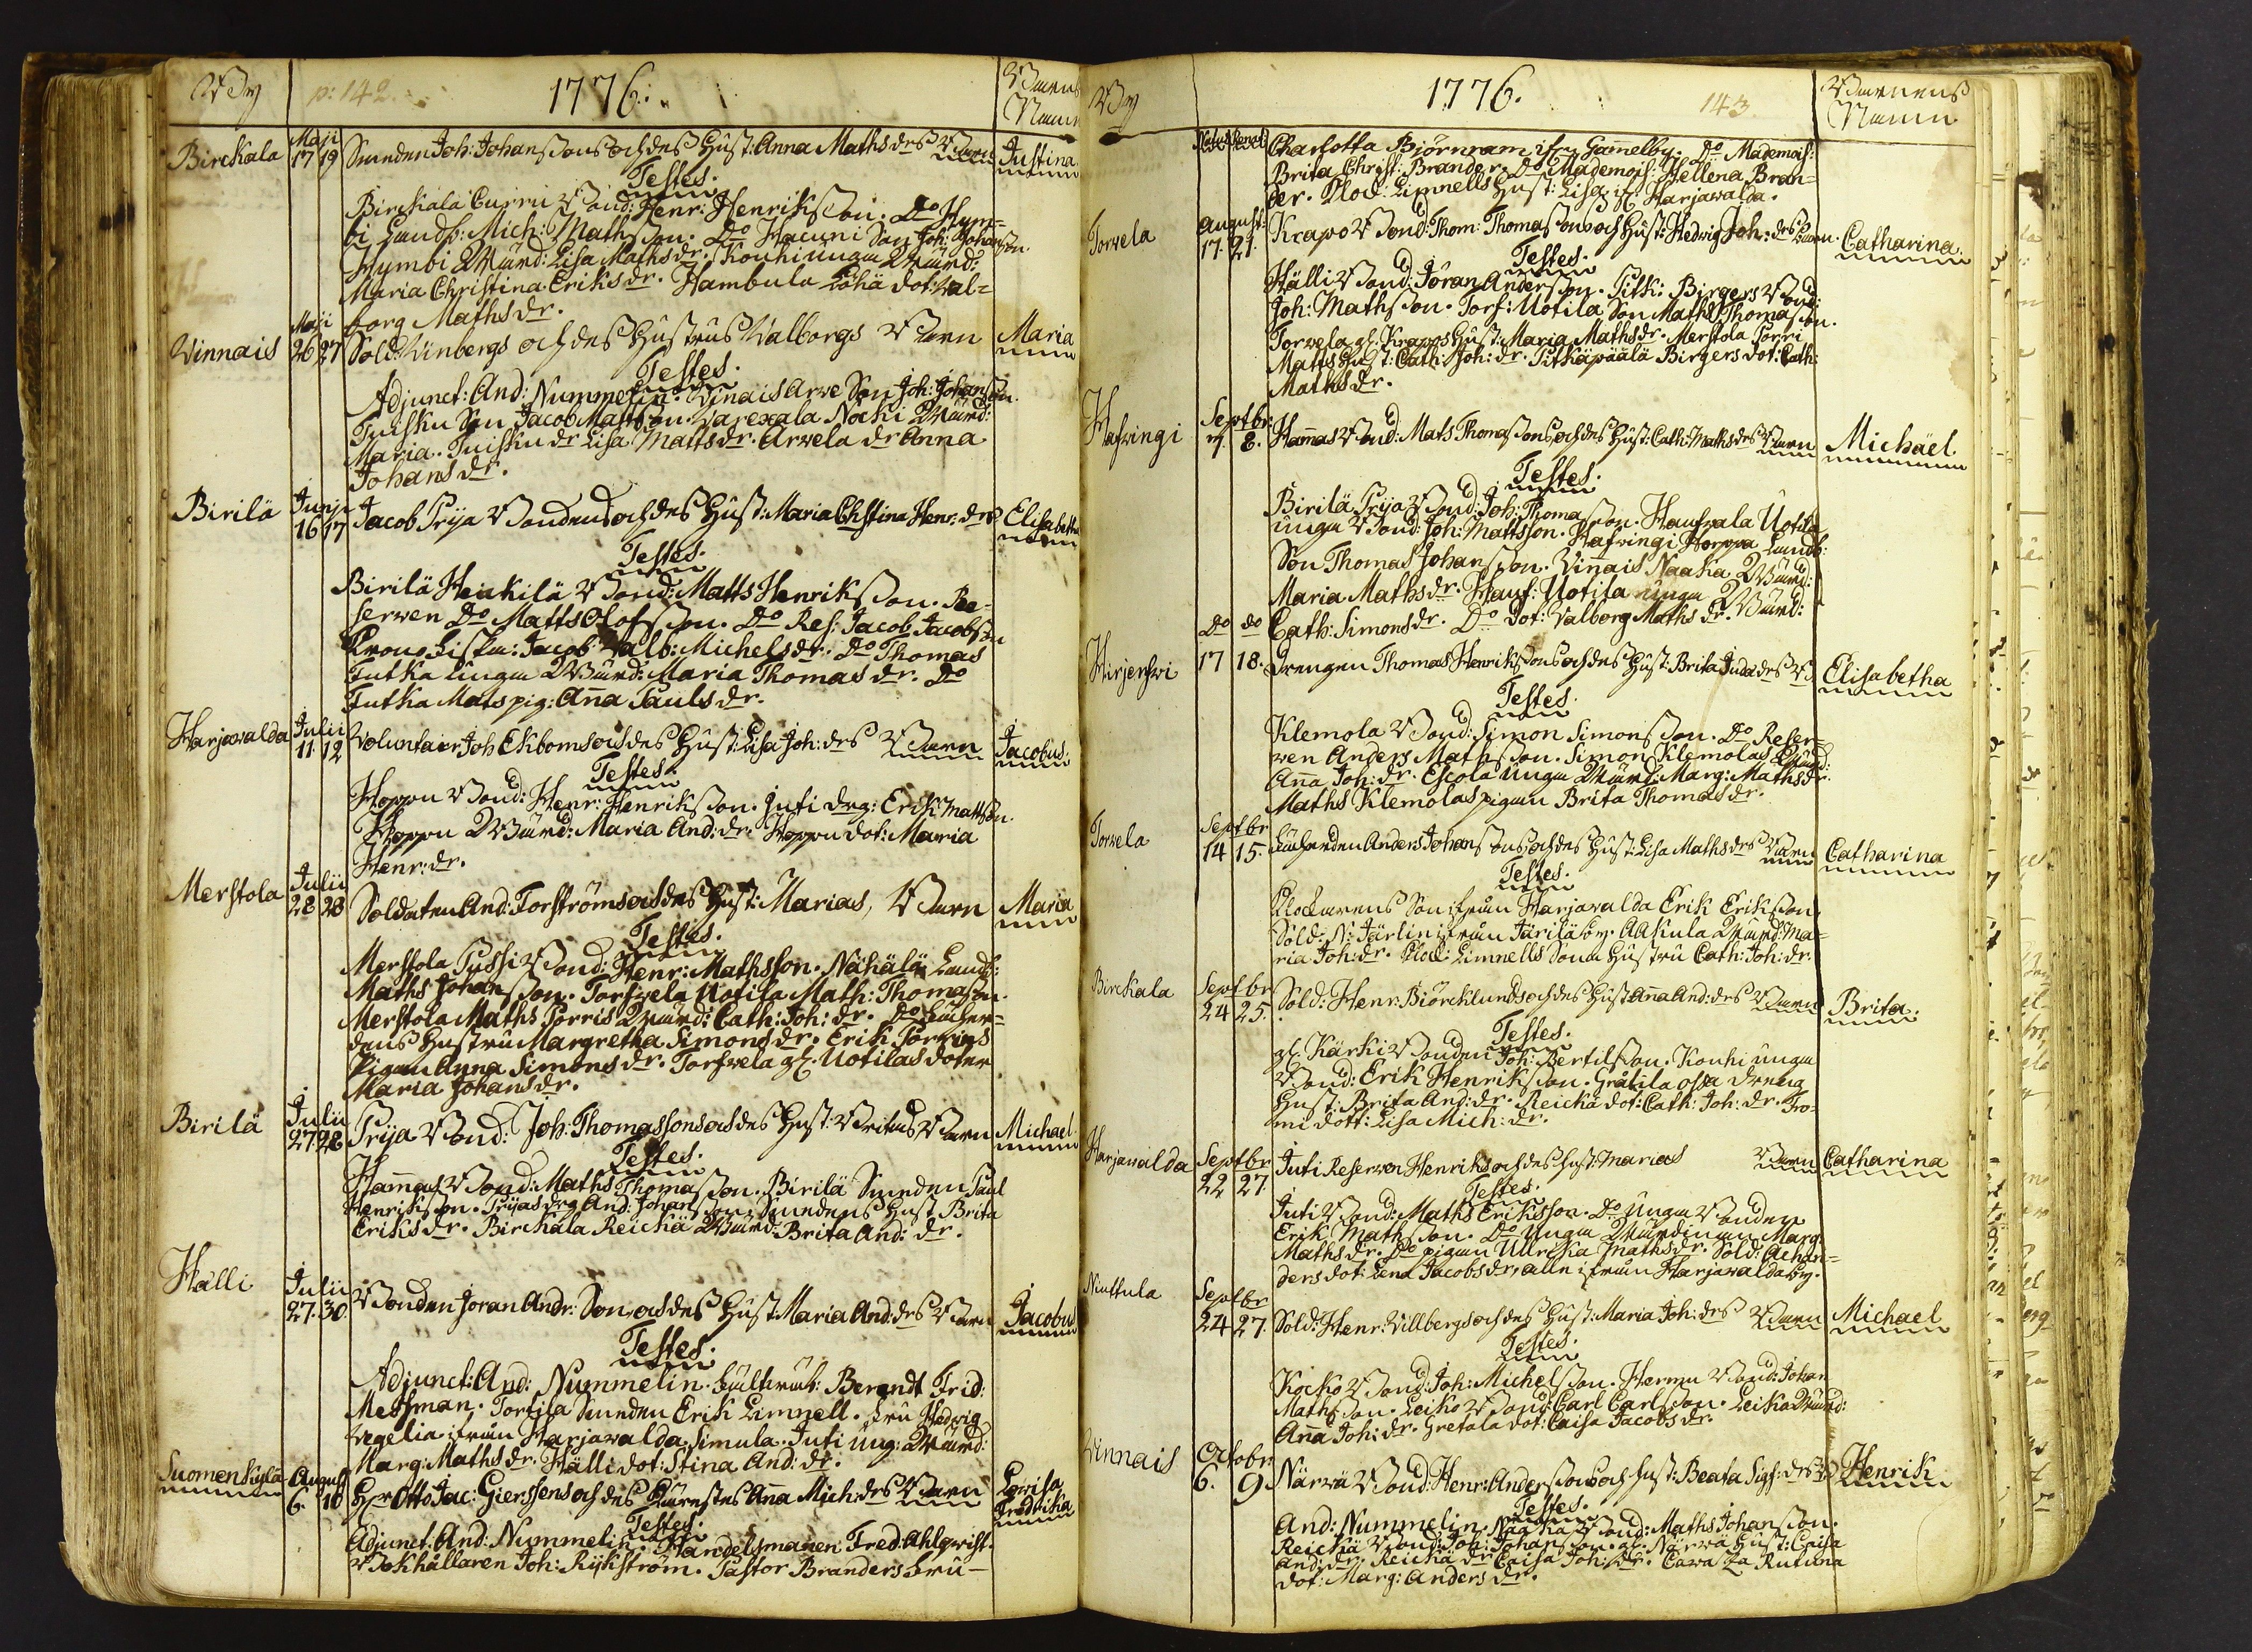 By p: 142. 1776. Barnens Namn
Birckala Maji 17 19 Smeden Joh: Johanssons och des Hust: Anna Mathsdrs Barn Justina
Testes.
Birckala Curru Bond: Henr: Henriksson. Do Hym=
bi Landb: Mich: Mathsson. Do Hacuni Son Joh: Johansson
Hymbi Wärd: Lisa Mathsdr. Kouhi unga Wärd:
Maria Christina Eriksdr. Hambula Löhä dot: Wal=
borg Mathsdr.
Vinnais Maji 26 27 Sold: Linbergs och des Hustrus Walborgs Barn Maria
Testes.
Adjunct: And: Nummelin. Vinais Arve Son Joh: Johansson.
Tuisku Son Jacob Mattsson. Warexala Nocki Wärd:
Maria. Tuisku dr Lisa Mattsdr. Arvela dr Anna
Johansdr.
Birilä Junji 16 17 Jacob Prija Bondens och des Hust: Maria Chstina Henr: drs Elisabetha
Testes.
Birilä Heickilä Bond: Matts Henriksson. Re=
serven Do Matts Olofsson. Do Res: Jacob Jacobsson
Jacob Walb: Michelsdr. Do Thomas
Tutka unga Wärd: Maria Thomasdr. Do
Tutka Mats pig: Anna Paulsdr.
Harjawalda Julii 11 12 Voluntair Joh Ekboms och des Hust: Lisa Joh: drs Barn Jacobus.
Testes.
Hoppu Bond: Henr: Henriksson. Juti drg: Erik Mattsson.
Hoppu Wärd: Maria And: dr. Hoppu dot: Maria
Henr: dr.
Merstola Julii 28 28 Soldaten And: Forströms och des Hust: Marias, Barn Maria
Testes.
Merstola Pussi Bond: Henr: Mathsson. Nähälä Landb:
Maths Johansson. Torfvela Uotila Math: Thomasson.
Merstola Maths Porris Wärd: Cath: Joh: dr. Do
dens Hustru Margretha Simonsdr. Erik Porrins
Pigan Anna Simonsdr. Torfvela gl. Uotilas doter
Maria Johansdr.
Birilä Julii 27 28 Prija Bond: Joh: Thomassons och des Hust: Britas Barn Michael.
Testes.
Hannas Bond: Maths Thomasson. Birilä Smeden Paul
Henriksson. Prijas drg And: Johansson. Smedens Hust Brita
Eriksdr. Birckala Reickä Wärd: Brita And: dr.
Hälli Julii 27. 30. Bonden Joran Andr: Son och des Hust: Maria And: drs Barn Jacobus
Testes.
Adjunct: And: Nummelin. Berendt Frid:
Melhman. Torfila Smeden Erik Limnell. Fru Hedvig
Wegelia ifrån Harjawalda Simula. Juti ung: Wärd:
Marg: Mathsdr. Hälli dot: Stina And: dr.
Suomenkylä August 6. 10 Hr Otto Jac: Gierssens och des Anna Mich: drs Barn Lovisa Fredrika
Testes.
Adjunct. And: Nummelin. Handelsmanen Fred: Ahlqwist.
Bokhållaren Joh: Rijkström. Pastor Branders Fru—
By 1776. 143 Barnens Namn
Natus Renat: Charlotta Björnram ifrån Gammelby. Do Mademois:
Brita Christ: Brander. Do Mademois: Hellena Bran=
der. Klock: Limnells Hust: Lisa ifr Harjawalda.
Torvela August: 17. 21. Krapo Bond: Thom: Thomassons och Hust: Hedvig Joh: drs Barn. Catharina.
Testes.
Hälli Bond: Jöran Andersson. Pitk: Birgers Bond:
Joh: Mathsson. Torf: Uotila Son Maths Thomasson.
Torvela gl. Krapos Hust: Maria Mathsdr. Merstola Porri
Matts Hust: Cath: Joh: dr. Pitkäpäälä Birgers dot: Cath:
Mathsdr.
Hafvingi Septbr: 7. 8. Hannas Bond: Mats Thomassons och des Hust: Cath: Mathsdrs Barn Michäel
Testes.
Birilä Prija Bond: Joh: Thomasson. Haufvala Uotila
unga Bond: Joh: Mattsson. Hafvingi Hoppa Landb:
Son Thomas Johansson. Vinais Naaka Wärd:
Maria Mathsdr. Hauf: Uotila unga Wärd:
Cath: Simonsdr. Do dot: Valborg Mathsdr.
Hirjerfvi Do do 17 18. Drengen Thomas Henrikssons och des Hust: Brita Juda drs B Elisabetha
Testes.
Klemola Bond: Simon Simonsson. Do Reser=
ven Anders Mathsson. Simon Klemolas Wärd:
Anna Joh: dr. Escola unga Wärd: Marg: Mathsdr.
Maths Klemolas pigan Brita Thomasdr.
Torvela Septbr 14 15. Anders Johanssons och des Hust: Lisa Mathsdrs Barn Catharina
Testes.
Klockarens Son ifrån Harjavalda Erik Eriksson.
Sold. N: Järlin ifrån Järilä by. Ahsiula Wärd: Ma=
ria Joh: dr. Klock: Limnells Sons Hustru Cath: Joh: dr.
Birckala Septbr 24 25. Sold: Henr: Biörcklunds och des Hust: Anna And: drs Barn Brita.
Testes.
gl. Kärki Bonden Joh: Bertilsson. Kouhi unga
Bond: Erik Henriksson. Gråtila dreng
Hust: Brita And: dr. Reickä dot: Cath: Joh: dr. Tro=
mi dott: Lisa Mich: dr.
Harjawalda Septbr 22 27 Juti Reserven Henriks och des Hust: Marias Barn Catharina
Testes.
Juti Bond: Maths Eriksson. Do unga Bonden
Erik Mathsson. Do unga Wärdinnan Marg:
Mathsdr. Do pigan Ullrcka Mathsdr. Sold:
ders dot: Lena Jacobsdr, alla ifrån Harjawalda by.
Niuttula Septbr 24 27. Sold: Henr: Villbergs och des Hust: Maria Joh: drs Barn Michael
Testes
Kocko Bond: Joh: Michelsson. Hermu Bond: Johan
Mathsson. Leiko Bond: Carl Carlsson. Leika Wärd:
Ana Joh: dr. Gretala dot: Caisa Jacobsdr.
Vinnais Octobr 6. 9. Närvä Bond: Henr: Anderssons och Hust: Beata Sigf: drs B Henrik
Testes.
And: Nummelin. Naaka Bond: Maths Johansson.
Reickä Bond: Joh: Johansson. gl. Närvä Hust: Caisa
And: dr. Reickä dr Caisa Joh: dr.
dot: Marg: Andersdr.